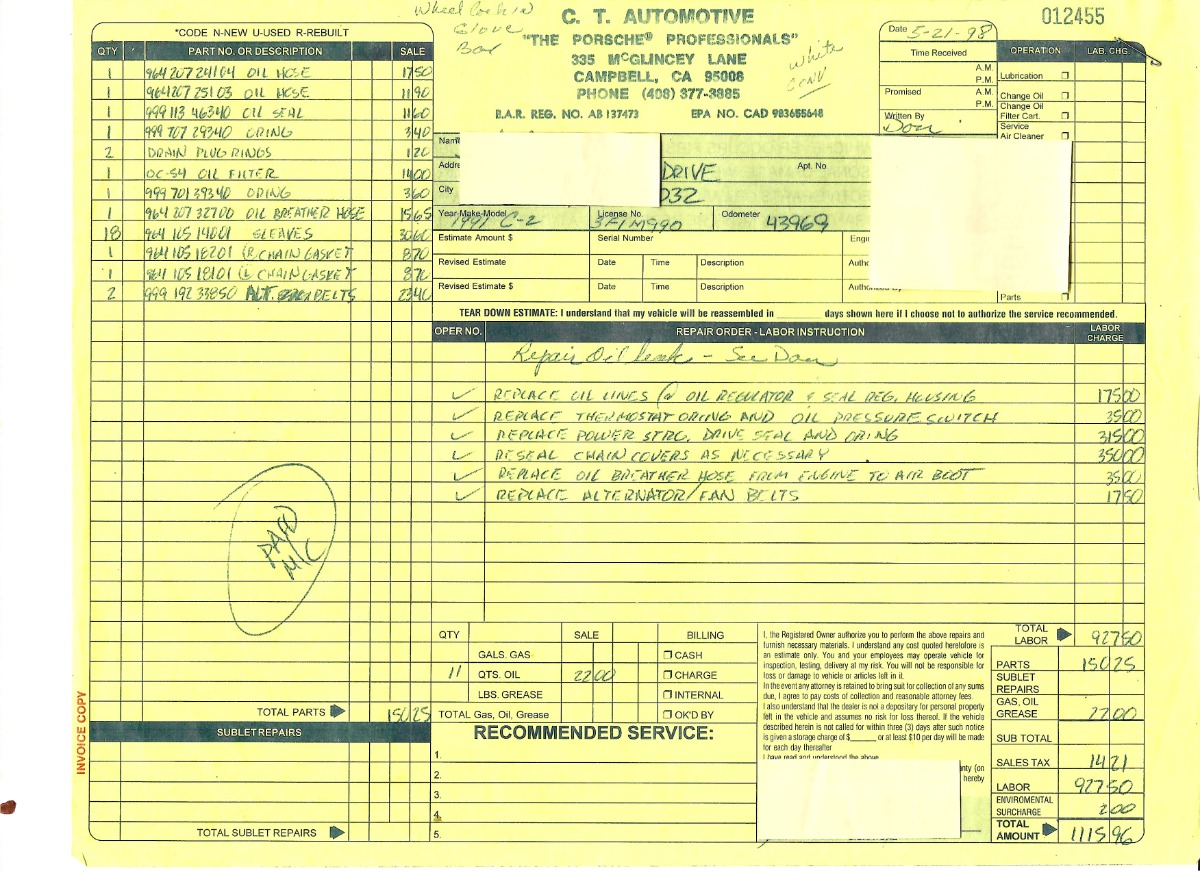 Wheel Lock in
Glove
Box
C. T. AUTOMOTIVE
"THE PORSCHE® PROFESSIONALS"
335 McGLINCEY LANE
CAMPBELL, CA 95008
PHONE (408) 377-3885
B.A.R. REG. NO. AB 137473 EPA NO. CAD 983655648
white
conv
012455
Date 5-21-98
Time Received
A.M.
P.M.
Promised A.M.
P.M.
Written By
Don
OPERATION LAB. CHG.
Lubrication
Change Oil
Change Oil
Filter Cart.
Service
Air Cleaner
Parts
*CODE N-NEW U-USED R-REBUILT
QTY PART NO. OR DESCRIPTION SALE
1 964 207 241 04 OIL HOSE 17 50
1 964 207 251 03 OIL HOSE 11 90
1 999 113 463 40 OIL SEAL 11 60
1 999 707 293 40 ORING 3 40
2 DRAIN PLUG RINGS 1 20
1 OC-54 OIL FILTER 14 00
1 999 701 393 40 ORING 3 60
1 964 207 327 00 OIL BREATHER HOSE 15 65
18 964 105 140 01 SLEAVES 30 60
1 964 105 182 01 (R CHAIN GASKET 8 70
1 964 105 181 01 (L CHAIN GASKET 8 70
2 999 192 338 50 ALT. BELTS 23 40
Name
Addre
DRIVE Apt. No
City
032
Year-Make-Model 1991 C-2 License No. 3FIM990 Odometer 43969
Estimate Amount $ Serial Number Engi
Revised Estimate Date Time Description Autho
Revised Estimate $ Date Time Description
TEAR DOWN ESTIMATE: I understand that my vehicle will be reassembled in ________ days shown here if I choose not to authorize the service recommended.
OPER NO. REPAIR ORDER - LABOR INSTRUCTION LABOR CHARGE
Repair Oil leak - See Don
✓ REPLACE OIL LINES @ OIL REGULATOR & SEAL REG. HOUSING 175 00
✓ REPLACE THERMOSTAT ORING AND OIL PRESSURE SWITCH 35 00
✓ REPLACE POWER STRG. DRIVE SEAL AND ORING 315 00
✓ RESEAL CHAIN COVERS AS NECESSARY 350 00
✓ REPLACE OIL BREATHER HOSE FROM ENGINE TO AIR BOOT 35 00
✓ REPLACE ALTERNATOR/FAN BELTS 17 50
PAID
M/C
INVOICE COPY
TOTAL PARTS 150 25
SUBLET REPAIRS
TOTAL SUBLET REPAIRS
QTY SALE BILLING
GALS. GAS CASH
11 QTS. OIL 22 00 CHARGE
LBS. GREASE INTERNAL
TOTAL Gas, Oil, Grease OK'D BY
RECOMMENDED SERVICE:
1.
2.
3.
4.
5.
I, the Registered Owner authorize you to perform the above repairs and
furnish necessary materials. I understand any cost quoted heretofore is
an estimate only. You and your employees may operate vehicle for
inspection, testing, delivery at my risk. You will not be responsible for
loss or damage to vehicle or articles left in it.
In the event any attorney is retained to bring suit for collection of any sums
due, I agree to pay costs of collection and reasonable attorney fees.
I also understand that the dealer is not a depositary for personal property
left in the vehicle and assumes no risk for loss thereof. If the vehicle
described herein is not called for within three (3) days after such notice
is given a storage charge of $______ or at least $10 per day will be made
for each day thereafter
I have read and understood the above
nty (on
hereby
TOTAL LABOR 927 50
PARTS 150 25
SUBLET REPAIRS
GAS, OIL GREASE 22 00
SUB TOTAL
SALES TAX 14 21
LABOR 927 50
ENVIROMENTAL SURCHARGE 2 00
TOTAL AMOUNT 1115 96